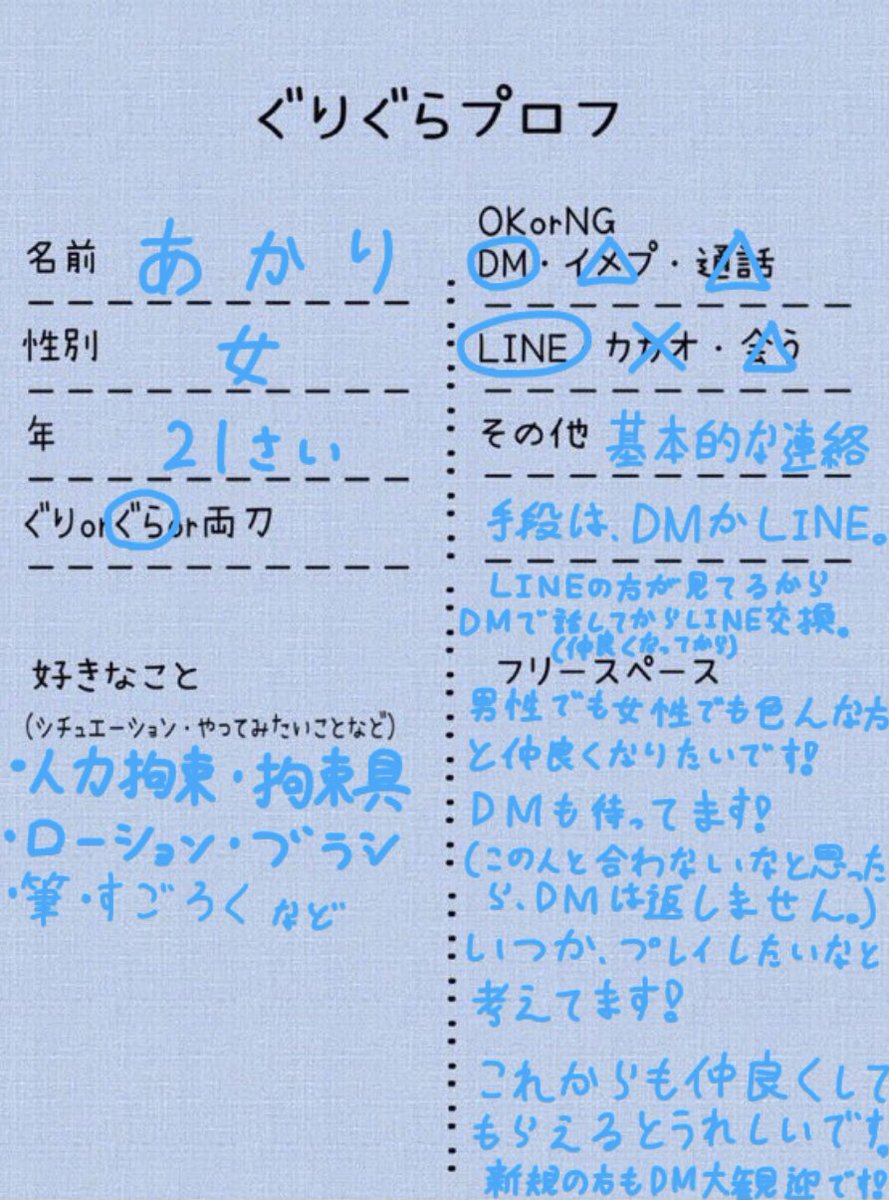 ぐりぐらプロフ
名前 あかり
性別 女
年 21さい
ぐりorぐらor両刀
好きなこと
(シチュエーション・やってみたいことなど)
・人力拘束・拘束具
・ローション・ブラシ
・筆・すごろく など
OKorNG
DM・イメプ・通話
LINE カカオ・会う
その他 基本的な連絡
手段は、DMかLINE。
LINEの方が見てるから
DMで話してからLINE交換。
(仲良くなってから)
フリースペース
男性でも女性でも色んな方
と仲良くなりたいです!
DMも待ってます!
(この人と合わないなと思った
ら、DMは返しません。)
いつか、プレイしたいなと
考えてます!
これからも仲良くして
もらえるとうれしいです。
新規の方もDM大観迎です!